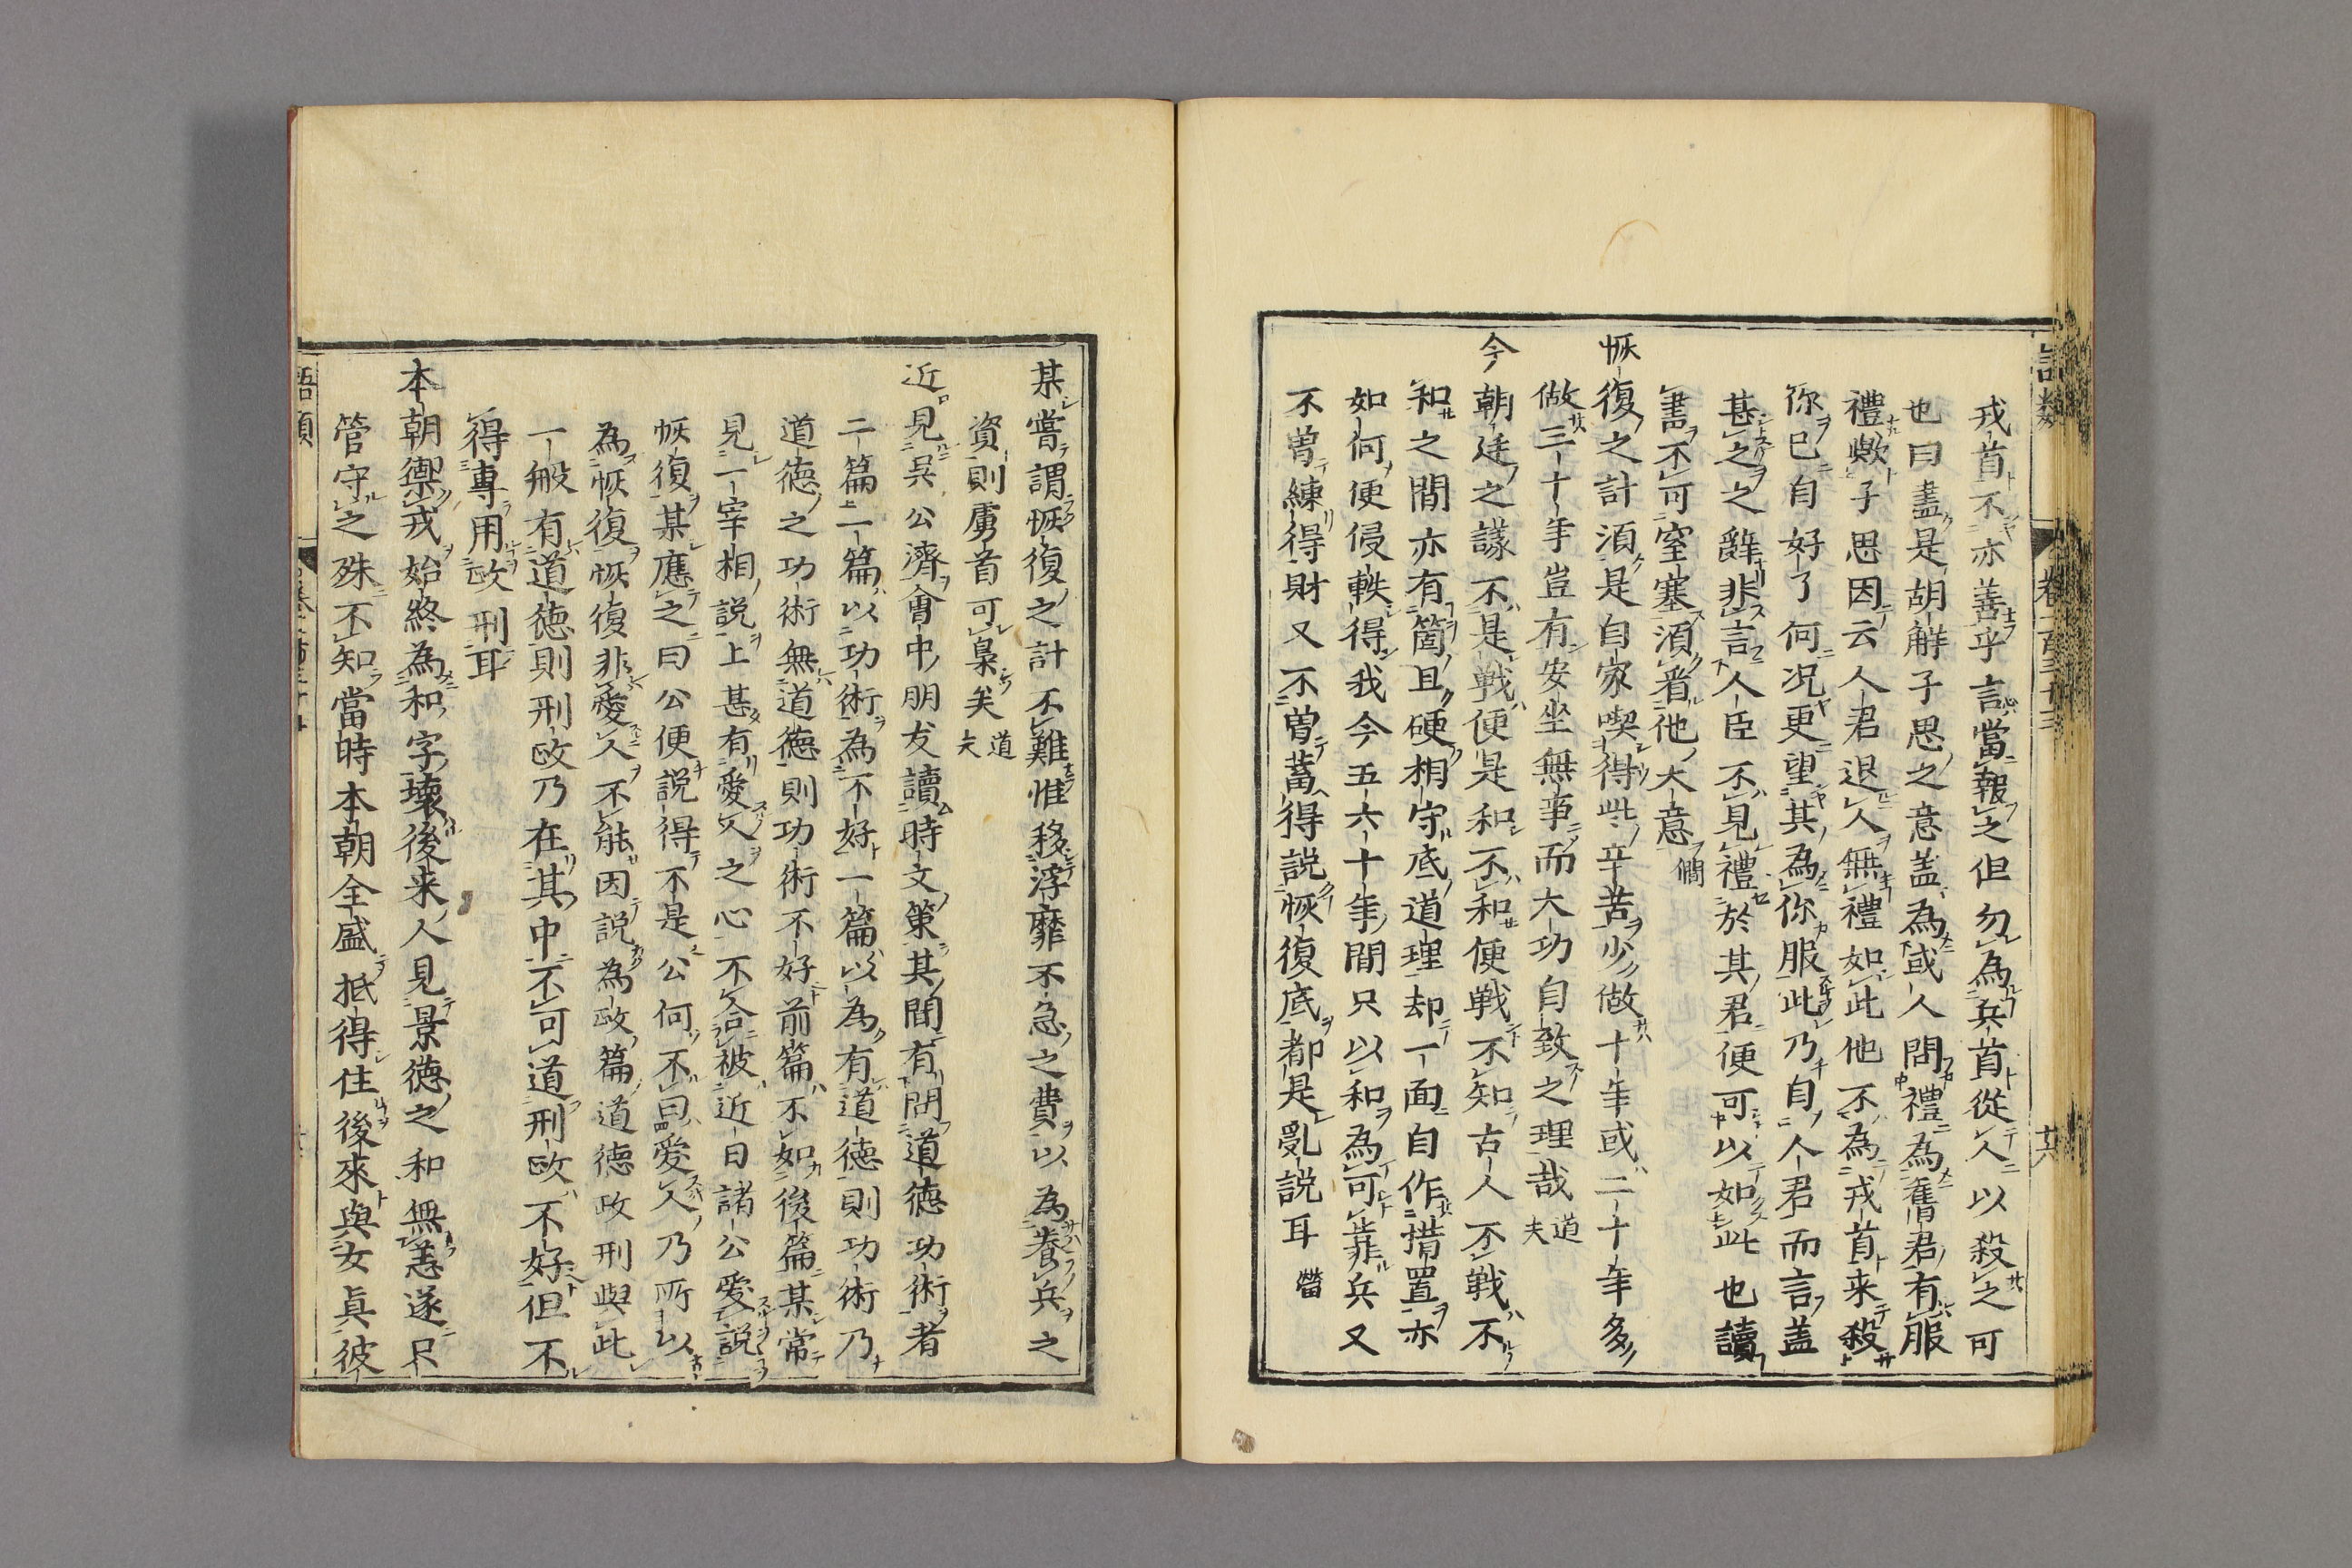 戎首不亦善乎言當報之但勿為兵首從人以殺之可
也曰盡是胡解子思之意盖為或人問禮為舊君有服
禮歟子思因云人君退人無禮如此他不為戎首来殺
你已自好了何况更望其為你服此乃自人君而言盖
甚之之辭非言人臣不見禮於其君便可以如此也讀
書不可窒塞須看他大意 僩
恢復之計須是自家喫得些辛苦少做十年或二十年多
做三十年豈有安坐無事而大功自致之理哉 道夫
今朝廷之議不是戰便是和不和便戰不知古人不戰不
和之間亦有箇且硬相守底道理却一面自作措置亦
如何便侵軼得我今五六十年間只以和為可靠兵又
不曽練得財又不曽蓄得説恢復底都是亂説耳 㽦
某嘗謂恢復之計不難惟移浮靡不急之費以為養兵之
資則虜首可梟矣 道夫
近見吴公濟會中朋友讀時文策其間有問道徳功術者
二篇一篇以功術為不好一篇以為有道徳則功術乃
道徳之功術無道徳則功術不好前篇不如後篇某常
見一宰相説上甚有愛人之心不合被近日諸公愛説
恢復某應之曰公便説得不是公何不曰愛人乃所以
為恢復恢復非愛人不能因説為政篇道徳政刑與此
一般有道徳則刑政乃在其中不可道刑政不好但不
得專用政刑耳
本朝禦戎始終為和字壞後来人見景徳之和無恙遂只
管守之殊不知當時本朝全盛抵得住後來與女眞彼
語類
卷一百三十三
廿六
語類